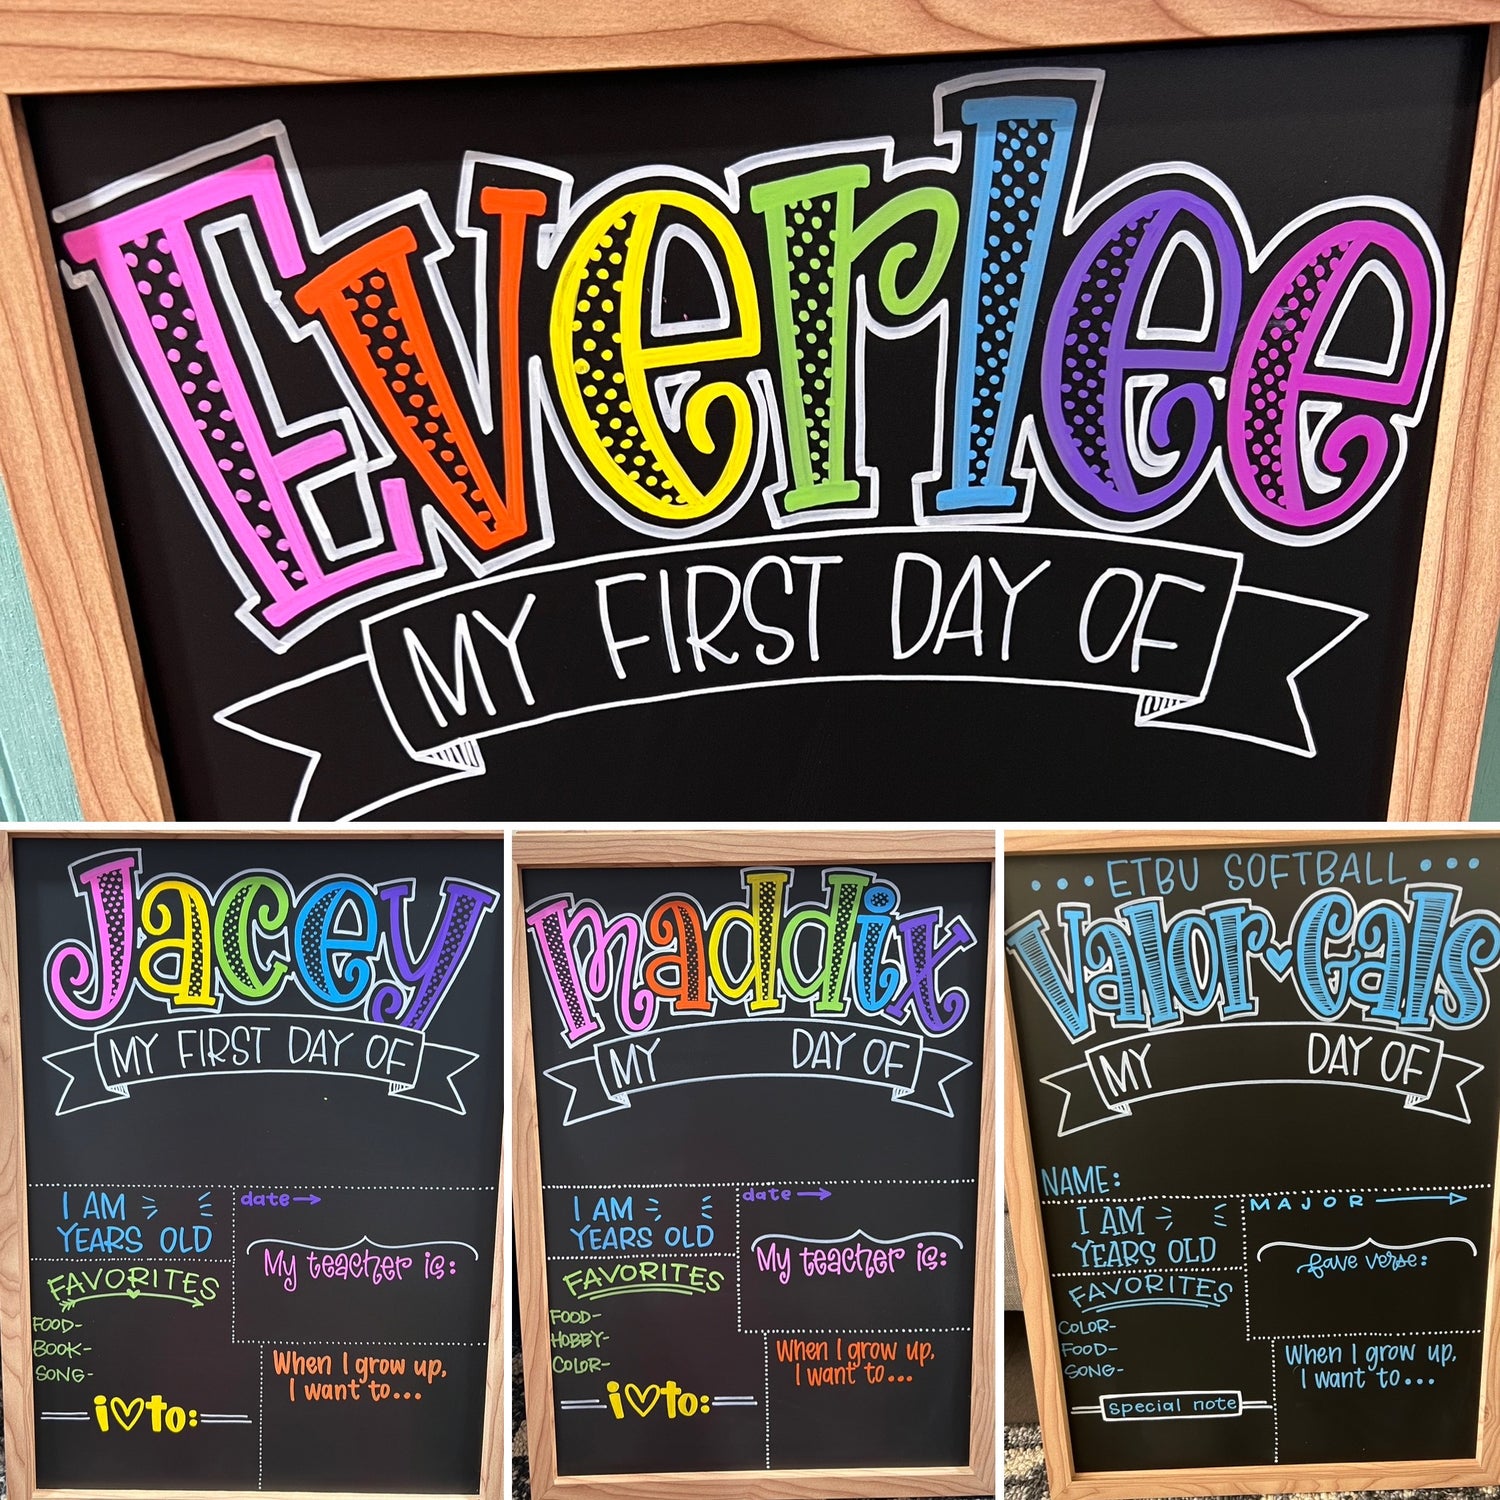 Everlee
MY FIRST DAY OF
Jacey
MY FIRST DAY OF
I AM
YEARS OLD
date→
My teacher is:
FAVORITES
FOOD-
BOOK-
SONG-
i♡to:
When I grow up,
I want to...
maddix
MY DAY OF
I AM
YEARS OLD
date→
My teacher is:
FAVORITES
FOOD-
HOBBY-
COLOR-
i♡to:
When I grow up,
I want to...
•••ETBU SOFTBALL•••
Valor♥Gals
MY DAY OF
NAME:
I AM
YEARS OLD
MAJOR→
fave verse:
FAVORITES
COLOR-
FOOD-
SONG-
special note
When I grow up,
I want to...